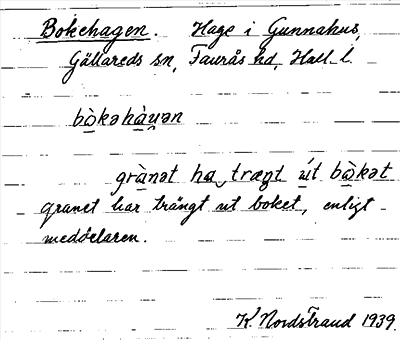 Bokehagen. Hage i Gunnahus,
Gällareds sn, Faurås hd, Hall. l.
bò̱kəhà̱u̯ən
grà̱nət ha̱ træŋt ú̱t bò̱kət
granet har trängt ut boket, enligt
meddelaren.
K. Nordstrand 1939.